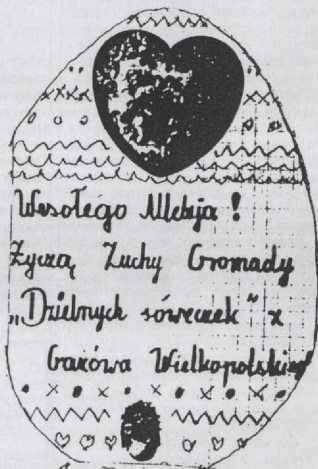 Wesołego Alleluja!
Życzą Zuchy Gromady
„Dzielnych sóweczek" z
Gaxówa Wielkopolskiego